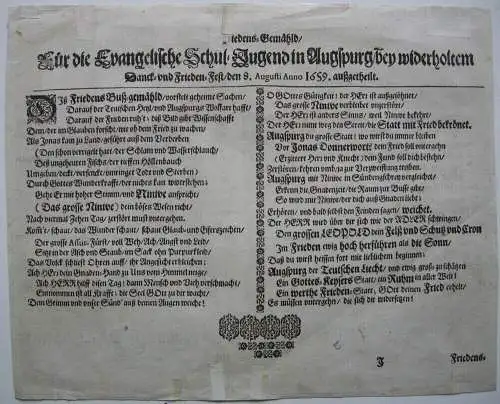 Friedens-Gemähld/
Für die Evangelische Schul-Jugend in Augspurg bey widerholtem
Danck- und Frieden-Fest/ den 8. Augusti Anno 1659. außgetheilt.
Diß Friedens Buß gemähld/ vorstelt geheime Sachen/
Darauf der Teutschen Heyl/ und Augspurgs Wolfart hafft/
Darauf der Frieden ruht: daß Bild gibt Wissenschafft
Dem/ der im Glauben forscht/ wie ob dem Fried zu wachen/
Als Jonas kam zu Land/ geführt auß dem Verderben
(Den schon verrigelt hatt/ der Schlam und Wasserschlauch/
Deß ungeheuren Fischs/ der tieffen Höllenbauch
Umgeben/ deckt/ versenckt/ umringet Todt und Sterben)
Durch Gottes Wunderkrafft/ der nichts kan widerstehen:
Geht Er mit hoher Stimm/ und Ninive anspricht/
(Das grosse Ninive) dein böses Wesen nicht/
Nach viermal Zehen Tag/ zerstört must untergehen.
Kom't/ schaut/ das Wunder schaut/ schaut Glaub- und Eyferzeichen/
Der grosse Assur-Fürst/ voll Weh/ Ach/ Angst und Leid/
Sitzt in der Asch und Staub/ im Sack ohn Purpurkleid/
Das Volck schreyt Ohren auß/ ihr Angesicht erbleichen:
Ach HErr dein Gnaden-Hand zu Uns vom Himmel neige/
Ach HERR hilff disen Tag/ dann Mensch und Vieh verschmacht/
Eingnommen ist all Krafft: die Seel GOtt zu dir wacht/
Dem Grimm und unser Sünd' auß deinen Augen weiche!
O GOttes Gütigkeit; der HErr ist außgesöhnet/
Das grosse Ninive verbleibet ungestört/
Der HErr ist anders Sinns/ weil Ninive bekehrt/
Der HErr nimt weg den Streit/ die Statt mit Fried bekrönet.
Augspurg du grosse Statt/ wo wurdest immer bleiben
Vor Jonas Donnerwort/ dem Fried soll untergehn
(Erzittert Herr und Knecht/ dem Fund soll dich bestehn/
Zerstören/ kehren umb/ zu zur Verzweyfflung treiben.
Augspurg mit Ninive in Sündenschlaff vergleichet/
Erkenn die Gnadenzeit/ die Raum zur Busse gibt/
So wird mit Ninive/ der dich auß Gnaden liebt/
Erhören/ und bald selbst dem Feinden sagen/ weichet.
Der HERR wird über dir sich wie der ADLER schwingen/
Den grossen LEOPOLD dein Felß und Schutz und Cron
Im Frieden ewig hoch herführen als die Sonn/
Daß du wirst heissen fort mit lieblichem beginnen:
Augspurg der Teutschen Liecht/ und ewig groß zuschätzen
Ein Gottes-Keysers Statt/ ein Ruhm in aller Welt!
Ein werthe Frieden-Statt/ GOtt deinen Fried erhelt/
Es müssen untergehn/ die sich dir widersetzen!
J
Friedens-